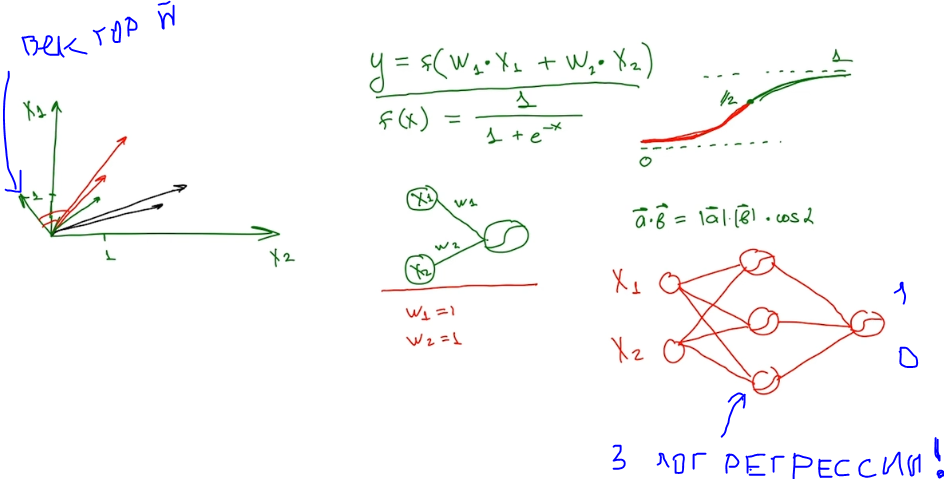 ВЕКТОР W̄
X1
1
1
X2
y = f(W1·X1 + W2·X2)
f(x) = 1 / (1 + e^-x)
1
1/2
0
X1
w1
w2
X2
w1=1
w2=1
a⃗·b⃗ = |a⃗|·|b⃗|·cos α
X1
X2
1
0
3 ЛОГ РЕГРЕССИИ!